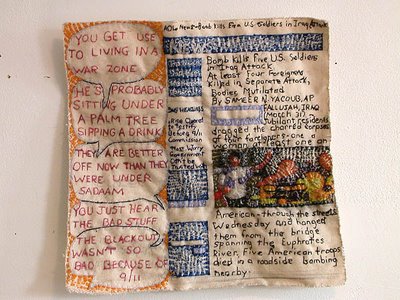 YOU GET USE
TO LIVING IN A
WAR ZONE
HE'S PROBABLY
SITTING UNDER
A PALM TREE
SIPPING A DRINK
THEY ARE BETTER
OFF NOW THAN THEY
WERE UNDER
SADAAM
YOU JUST HEAR
THE BAD STUFF
THE BLACKOUT
WASN'T SO
BAD BECAUSE OF
9/11
News-Bomb Kills Five U.S. Soldiers in Iraq Attack
NEWS
Rice Cleared
to Testify
before 9/11
Commission
Most Worry
Government
Bomb Kills Five U.S. Soldiers
in Iraq Attack
At least Four Foreigners
Killed in Separate Attack,
Bodies Mutilated
By SAMEER N. YACOUB, AP
FALLUJAH, IRAQ
(March 31)-
Jubilant residents
dragged the charred corpses
of four foreigners - one a
woman at least one an
American - through the streets
Wednesday and hanged
them from the bridge
spanning the Euphrates
River. Five American troops
died in a roadside bombing
nearby.